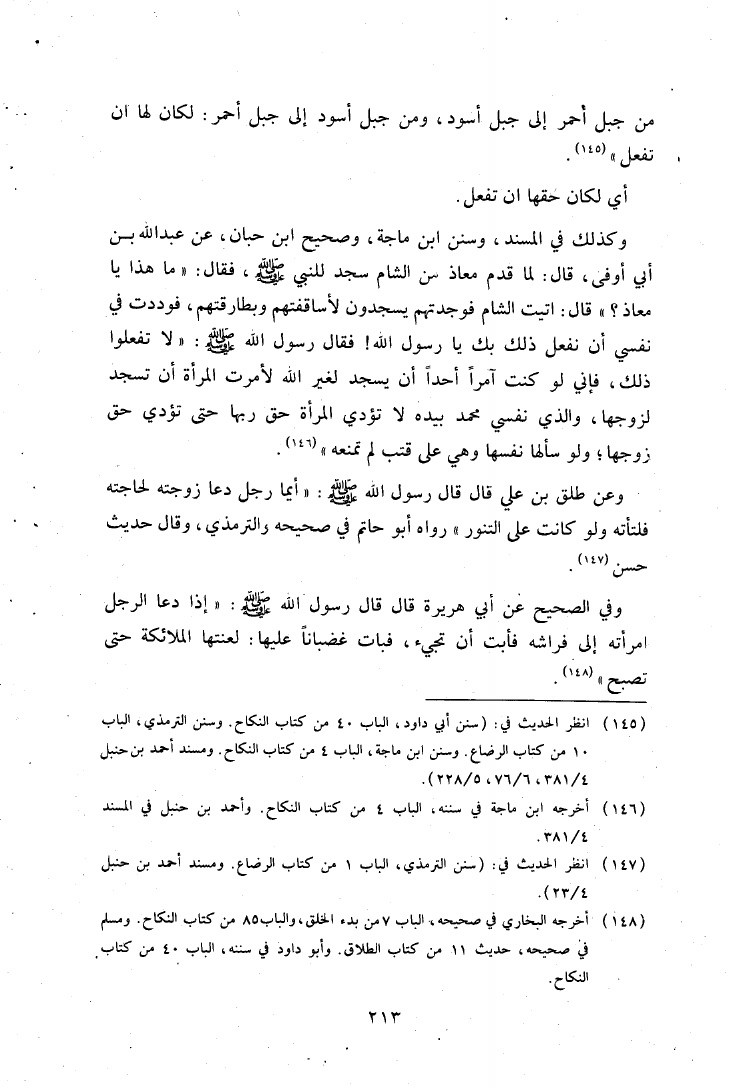 من جبل أحمر إلى جبل أسود، ومن جبل أسود إلى جبل أحمر: لكان لها ان
تفعل »(١٤٥).
أي لكان حقها ان تفعل.
وكذلك في المسند، وسنن ابن ماجة، وصحيح ابن حبان، عن عبدالله بن
أبي أوفى، قال: لما قدم معاذ من الشام سجد للنبي ﷺ، فقال: « ما هذا يا
معاذ؟ » قال: اتيت الشام فوجدتهم يسجدون لأساقفتهم وبطارقتهم، فوددت في
نفسي أن نفعل ذلك بك يا رسول الله! فقال رسول الله ﷺ: « لا تفعلوا
ذلك، فإني لو كنت آمراً أحداً أن يسجد لغير الله لأمرت المرأة أن تسجد
لزوجها، والذي نفسي محمد بيده لا تؤدي المرأة حق ربها حتى تؤدي حق
زوجها؛ ولو سألها نفسها وهي على قتب لم تمنعه »(١٤٦).
وعن طلق بن علي قال قال رسول الله ﷺ: « أيما رجل دعا زوجته لحاجته
فلتأته ولو كانت على التنور » رواه أبو حاتم في صحيحه والترمذي، وقال حديث
حسن(١٤٧).
وفي الصحيح عن أبي هريرة قال قال رسول الله ﷺ: « إذا دعا الرجل
امرأته إلى فراشه فأبت أن تجيء، فبات غضباناً عليها: لعنتها الملائكة حتى
تصبح »(١٤٨).
(١٤٥) انظر الحديث في: (سنن أبي داود، الباب ٤٠ من كتاب النكاح. وسنن الترمذي، الباب
١٠ من كتاب الرضاع. وسنن ابن ماجة، الباب ٤ من كتاب النكاح. ومسند أحمد بن حنبل
٣٨١/٤، ٧٦/٦، ٢٢٨/٥).
(١٤٦) أخرجه ابن ماجة في سننه، الباب ٤ من كتاب النكاح. وأحمد بن حنبل في المسند
٣٨١/٤.
(١٤٧) انظر الحديث في: (سنن الترمذي، الباب ١ من كتاب الرضاع. ومسند أحمد بن حنبل
٢٣/٤).
(١٤٨) أخرجه البخاري في صحيحه، الباب ٧ من بدء الخلق، والباب ٨٥ من كتاب النكاح. ومسلم
في صحيحه، حديث ١١ من كتاب الطلاق. وأبو داود في سننه، الباب ٤٠ من كتاب
النكاح.
٢١٣